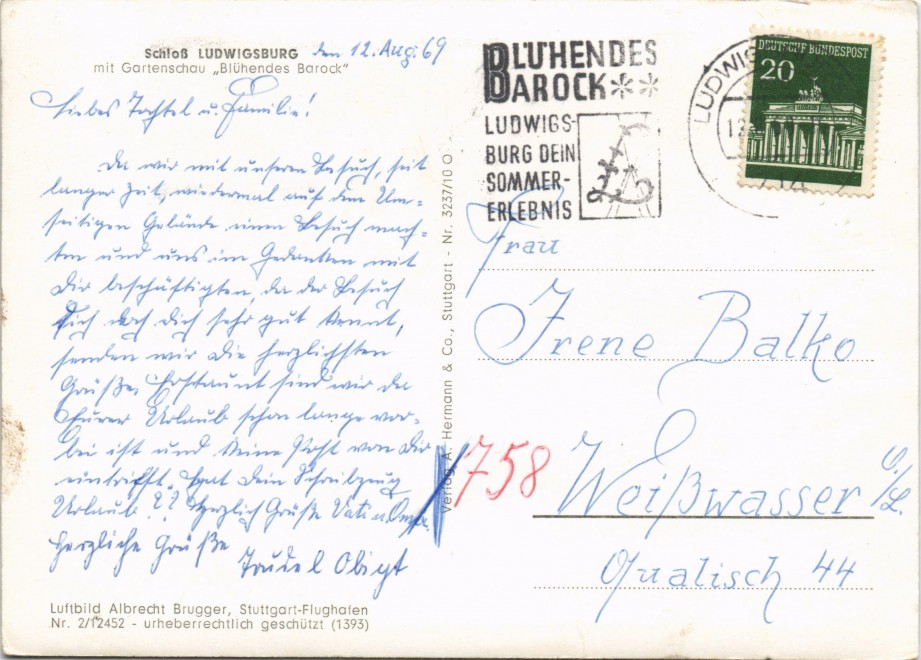 Schloß LUDWIGSBURG den 12. Aug. 69
mit Gartenschau „Blühendes Barock"
Liebes Tochtel u. Familie!
Da wir mit unseren Besuch, seit
langer Zeit, wiedermal auf dem Um=
seitigen Gelände einen Besuch mach=
ten und uns im Gedanken mit
Dir beschäftigten, da der Besuch
Dich doch sehr gut kennt,
senden wir die herzlichsten
Grüße. Erstaunt sind wir da
Eurer Urlaub schon lange vor=
bei ist und keine Post von Dir
eintrifft. Hat Dein Schreibzeug
Urlaub?? Herzlich Grüße Vati u. Oma
Herzliche Grüße
Trudel
Luftbild Albrecht Brugger, Stuttgart-Flughafen
Nr. 2/12452 - urheberrechtlich geschützt (1393)
Verlag A. Hermann & Co., Stuttgart - Nr. 3237/10 O
BLÜHENDES
BAROCK
LUDWIGS-
BURG DEIN
SOMMER-
ERLEBNIS
LUDWIGS
12
714
DEUTSCHE BUNDESPOST
20
Frau
Irene Balko
758 Weißwasser O./L.
Gualisch 44